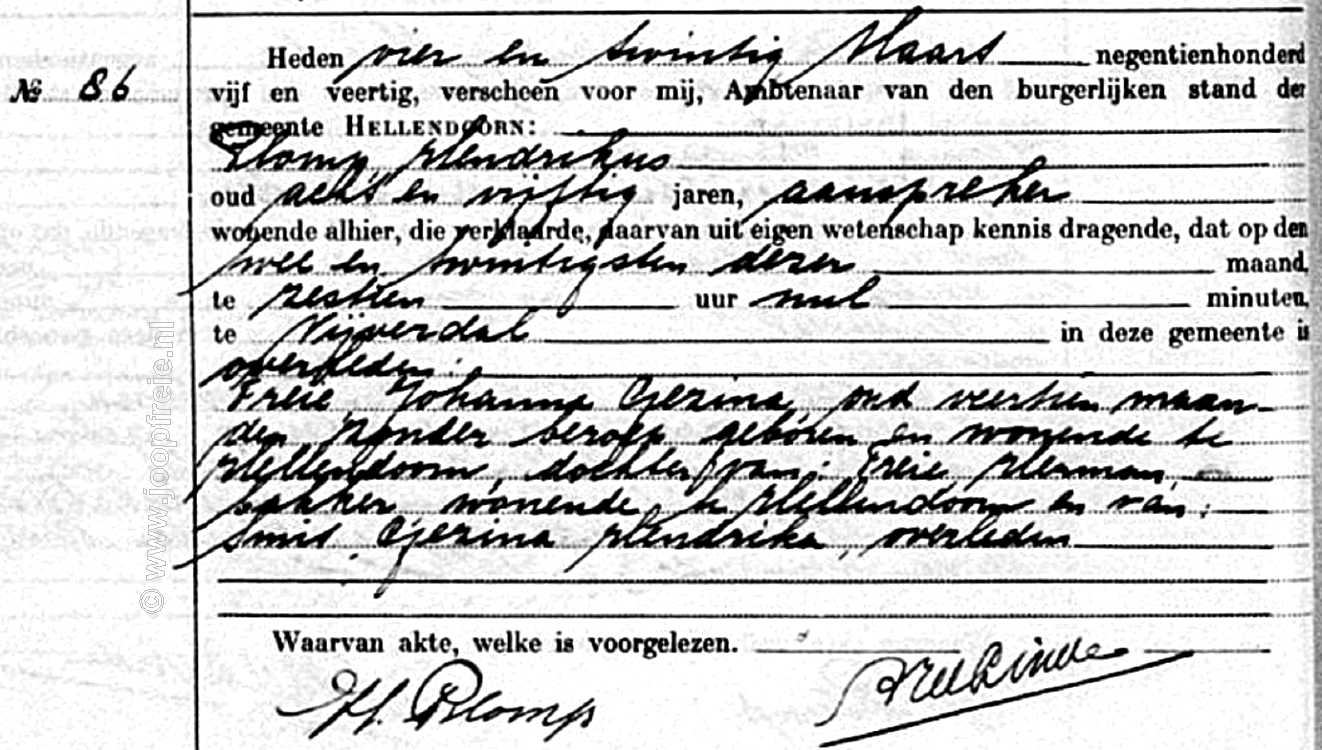 Heden vier en twintig Maart negentienhonderd
№ 86 vijf en veertig, verscheen voor mij, Ambtenaar van den burgerlijken stand der
gemeente HELLENDOORN:
Blomp, Hendrikus
oud acht en vijftig jaren, aanspreker
wonende alhier, die verklaarde, daarvan uit eigen wetenschap kennis dragende, dat op den
twee en twintigsten dezer maand,
te zestien uur nul minuten,
te Nijverdal in deze gemeente is
overleden:
Freie, Johanna Gezina, oud veertien maan-
den, zonder beroep, geboren en wonende te
Hellendoorn, dochter van: Freie, Herman,
bakker, wonende te Hellendoorn en van:
Smit, Gezina Hendrika, overleden
Waarvan akte, welke is voorgelezen.
H. Blomp
© www.joopfreie.nl